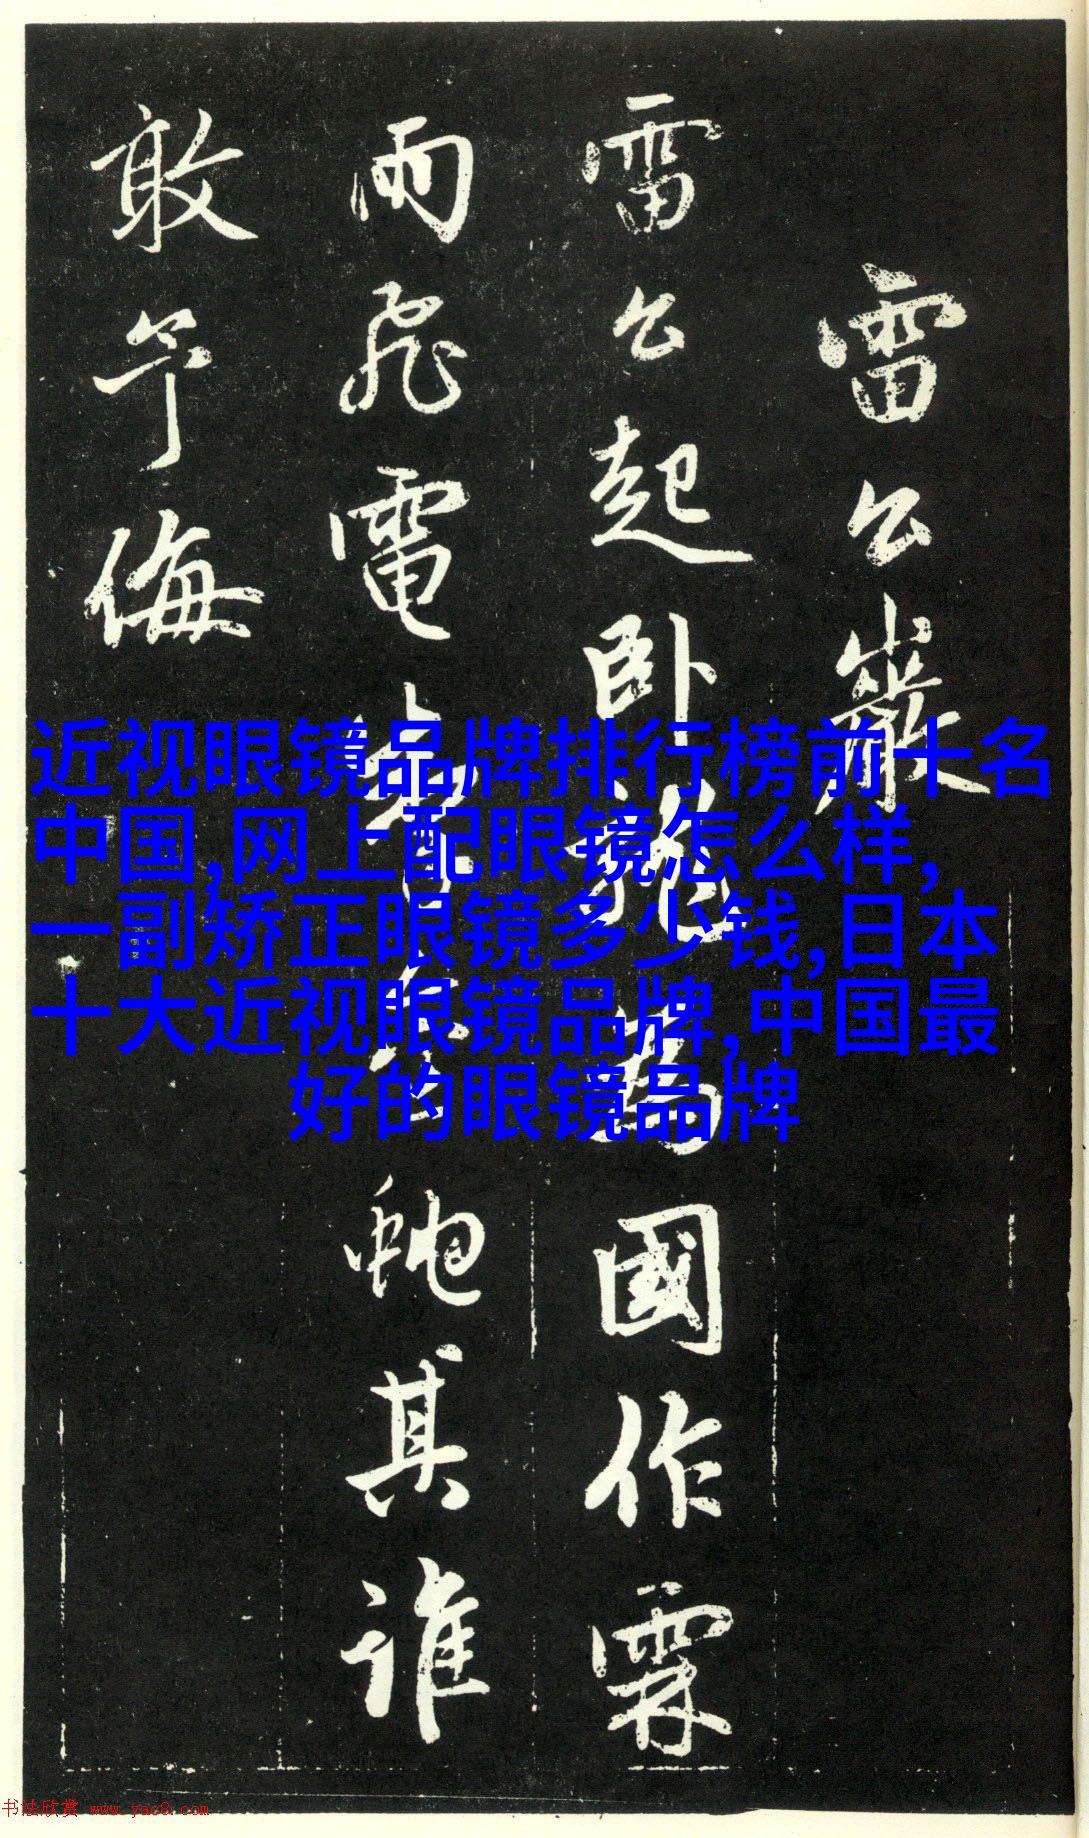 雷公巖
雷公起卧龍為國作霖
雨飛電蛇其誰
敢予侮
近视眼镜品牌排行榜前十名
中国,网上配眼镜怎么样,
一副矫正眼镜多少钱,日本
十大近视眼镜品牌,中国最
好的眼镜品牌
书法欣赏 www.yac8.com